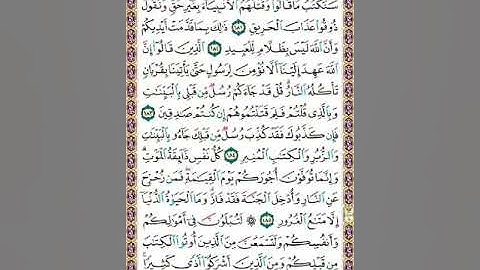 سَنَكْتُبُ مَا قَالُوا۟ وَقَتْلَهُمُ ٱلْأَنۢبِيَآءَ بِغَيْرِ حَقٍّ وَنَقُولُ
ذُوقُوا۟ عَذَابَ ٱلْحَرِيقِ ١٨١ ذَٰلِكَ بِمَا قَدَّمَتْ أَيْدِيكُمْ
وَأَنَّ ٱللَّهَ لَيْسَ بِظَلَّامٍ لِّلْعَبِيدِ ١٨٢ ٱلَّذِينَ قَالُوٓا۟ إِنَّ
ٱللَّهَ عَهِدَ إِلَيْنَآ أَلَّا نُؤْمِنَ لِرَسُولٍ حَتَّىٰ يَأْتِيَنَا بِقُرْبَانٍ
تَأْكُلُهُ ٱلنَّارُ قُلْ قَدْ جَآءَكُمْ رُسُلٌ مِّن قَبْلِى بِٱلْبَيِّنَٰتِ
وَبِٱلَّذِى قُلْتُمْ فَلِمَ قَتَلْتُمُوهُمْ إِن كُنتُمْ صَٰدِقِينَ ١٨٣
فَإِن كَذَّبُوكَ فَقَدْ كُذِّبَ رُسُلٌ مِّن قَبْلِكَ جَآءُو بِٱلْبَيِّنَٰتِ
وَٱلزُّبُرِ وَٱلْكِتَٰبِ ٱلْمُنِيرِ ١٨٤ كُلُّ نَفْسٍ ذَآئِقَةُ ٱلْمَوْتِ
وَإِنَّمَا تُوَفَّوْنَ أُجُورَكُمْ يَوْمَ ٱلْقِيَٰمَةِ فَمَن زُحْزِحَ
عَنِ ٱلنَّارِ وَأُدْخِلَ ٱلْجَنَّةَ فَقَدْ فَازَ وَمَا ٱلْحَيَوٰةُ ٱلدُّنْيَآ
إِلَّا مَتَٰعُ ٱلْغُرُورِ ١٨٥ ۞ لَتُبْلَوُنَّ فِىٓ أَمْوَٰلِكُمْ
وَأَنفُسِكُمْ وَلَتَسْمَعُنَّ مِنَ ٱلَّذِينَ أُوتُوا۟ ٱلْكِتَٰبَ
مِن قَبْلِكُمْ وَمِنَ ٱلَّذِينَ أَشْرَكُوٓا۟ أَذًى كَثِيرًا